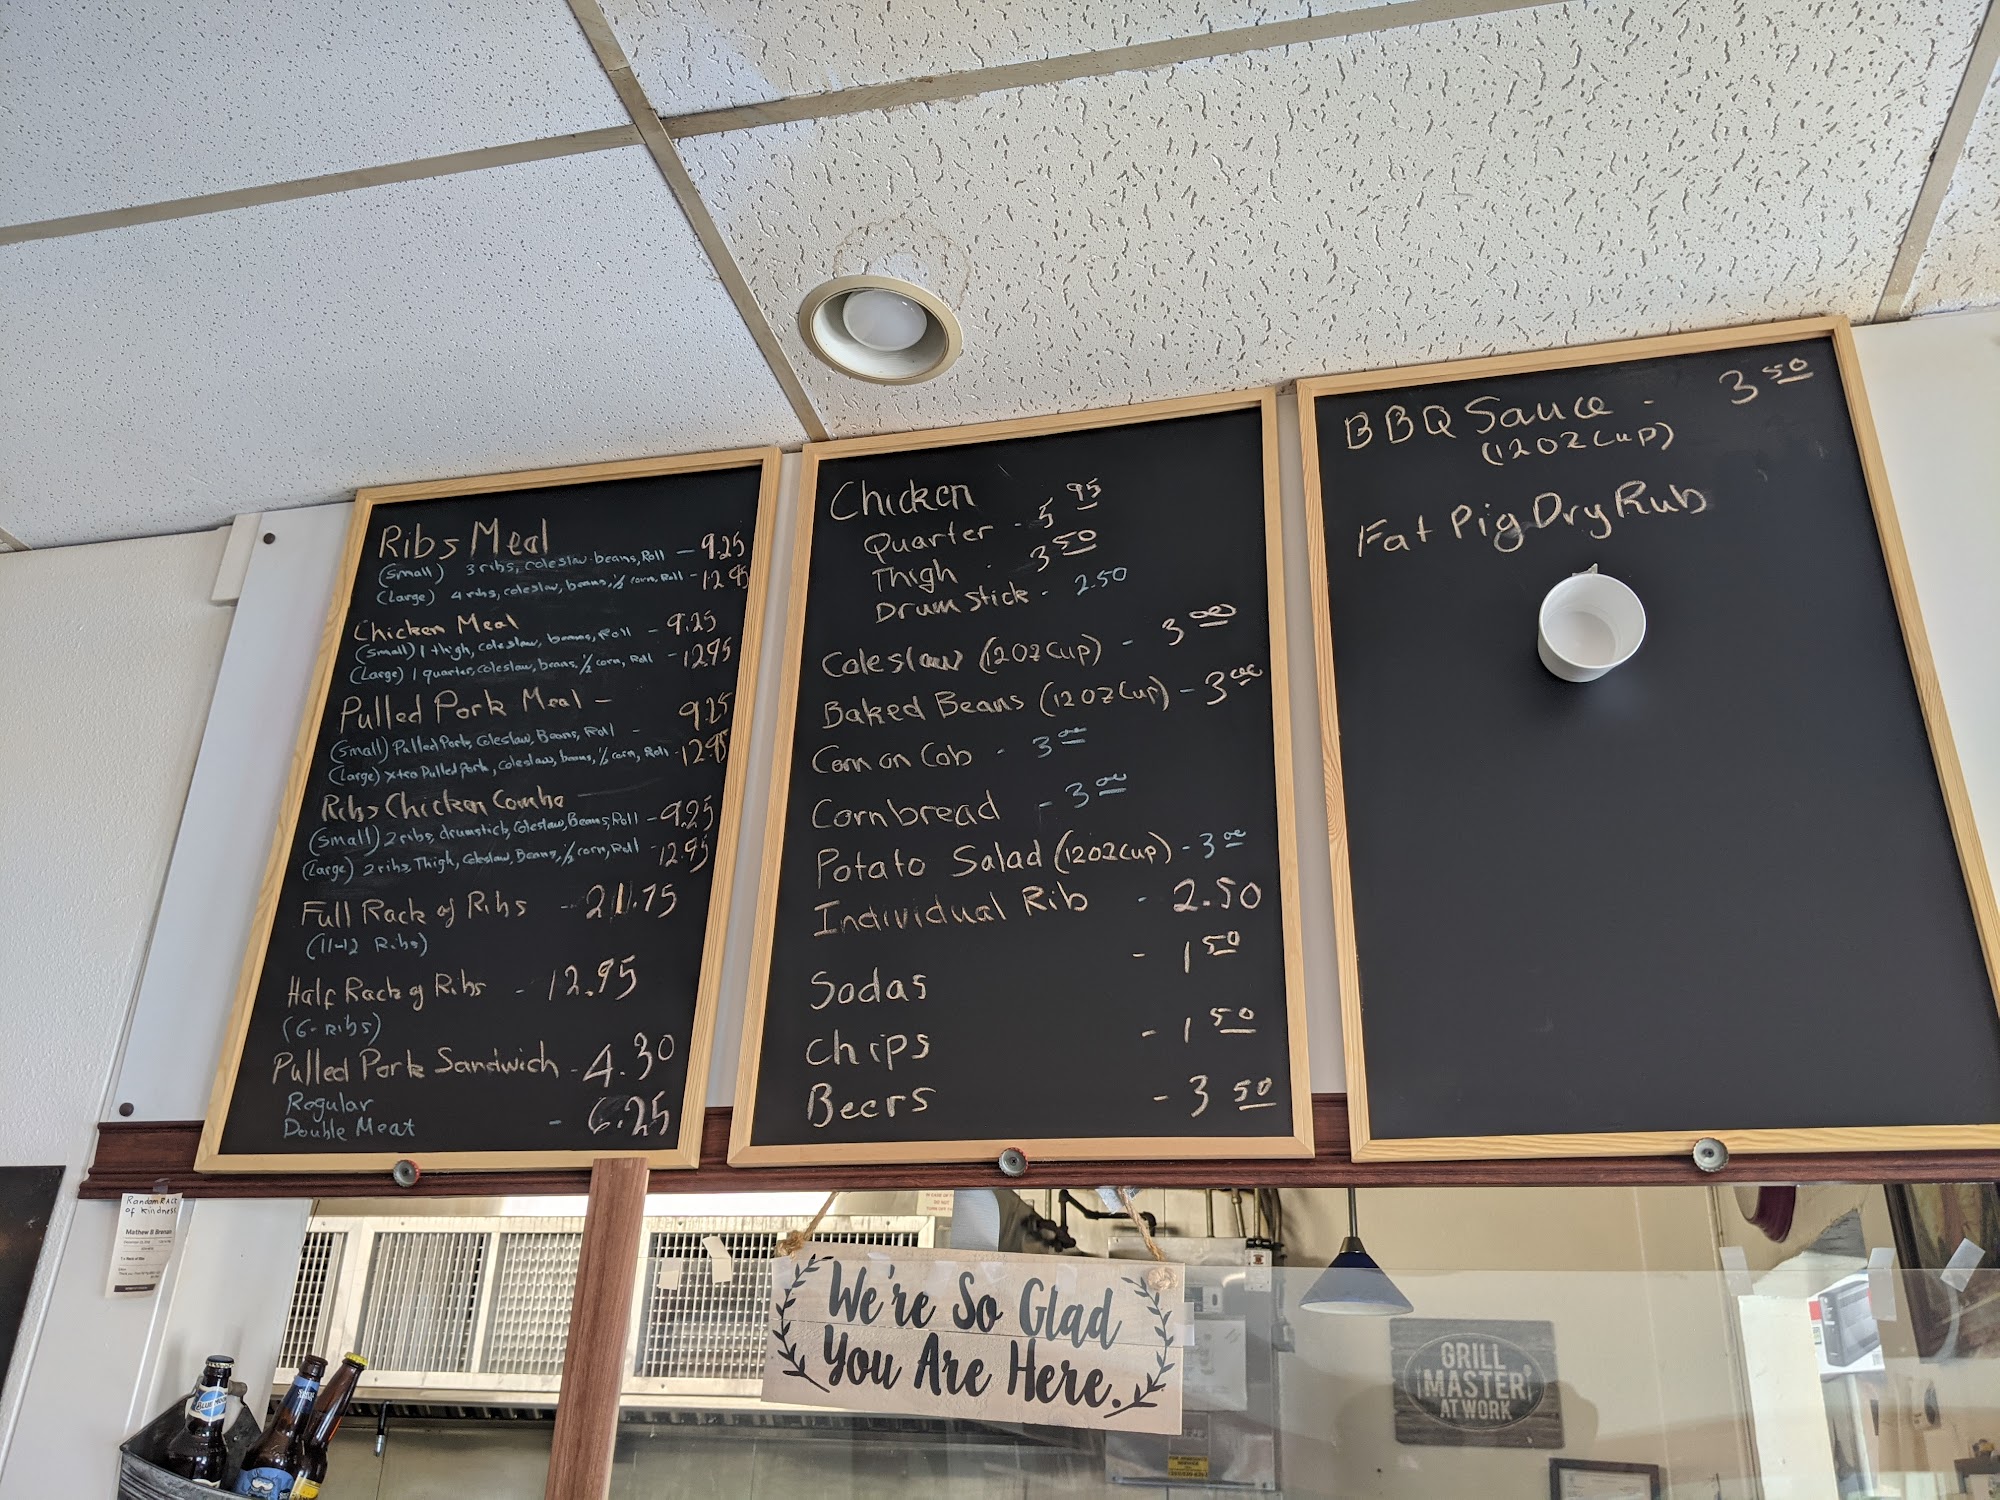 Ribs Meal
(small) 3 ribs, coleslaw beans, Roll - 9.25
(Large) 4 ribs, coleslaw, beans, 1/2 corn, Roll - 12.95
Chicken Meal
(small) 1 thigh, coleslaw, beans, Roll - 9.25
(Large) 1 quarter, coleslaw, beans, 1/2 corn, Roll - 12.95
Pulled Pork Meal -
(small) Pulled Pork, Coleslaw, Beans, Roll - 9.25
(Large) xtra Pulled Pork, coleslaw, beans, 1/2 corn, Roll - 12.95
Ribs Chicken Combo -
(small) 2 ribs, drumstick, Coleslaw, Beans, Roll - 9.25
(Large) 2 ribs, Thigh, Coleslaw, Beans, 1/2 corn, Roll - 12.95
Full Rack of Ribs - 21.75
(11-12 Ribs)
Half Rack of Ribs - 12.95
(6-Ribs)
Pulled Pork Sandwich - 4.30
Regular
Double Meat - 6.25
Chicken
Quarter - 5 95
Thigh - 3 50
Drum Stick - 2.50
Coleslaw (12oz Cup) - 3 00
Baked Beans (12oz Cup) - 3 00
Corn on Cob - 3 00
Cornbread - 3 00
Potato Salad (12oz Cup) - 3 00
Individual Rib - 2.50
Sodas - 1 50
Chips - 1 50
Beers - 3 50
BBQ Sauce - 3 50
(12oz Cup)
Fat Pig Dry Rub
Random Act
of kindness
Mathew B Brenan
We're So Glad
You Are Here.
GRILL
MASTER
AT WORK
BLUE MOON